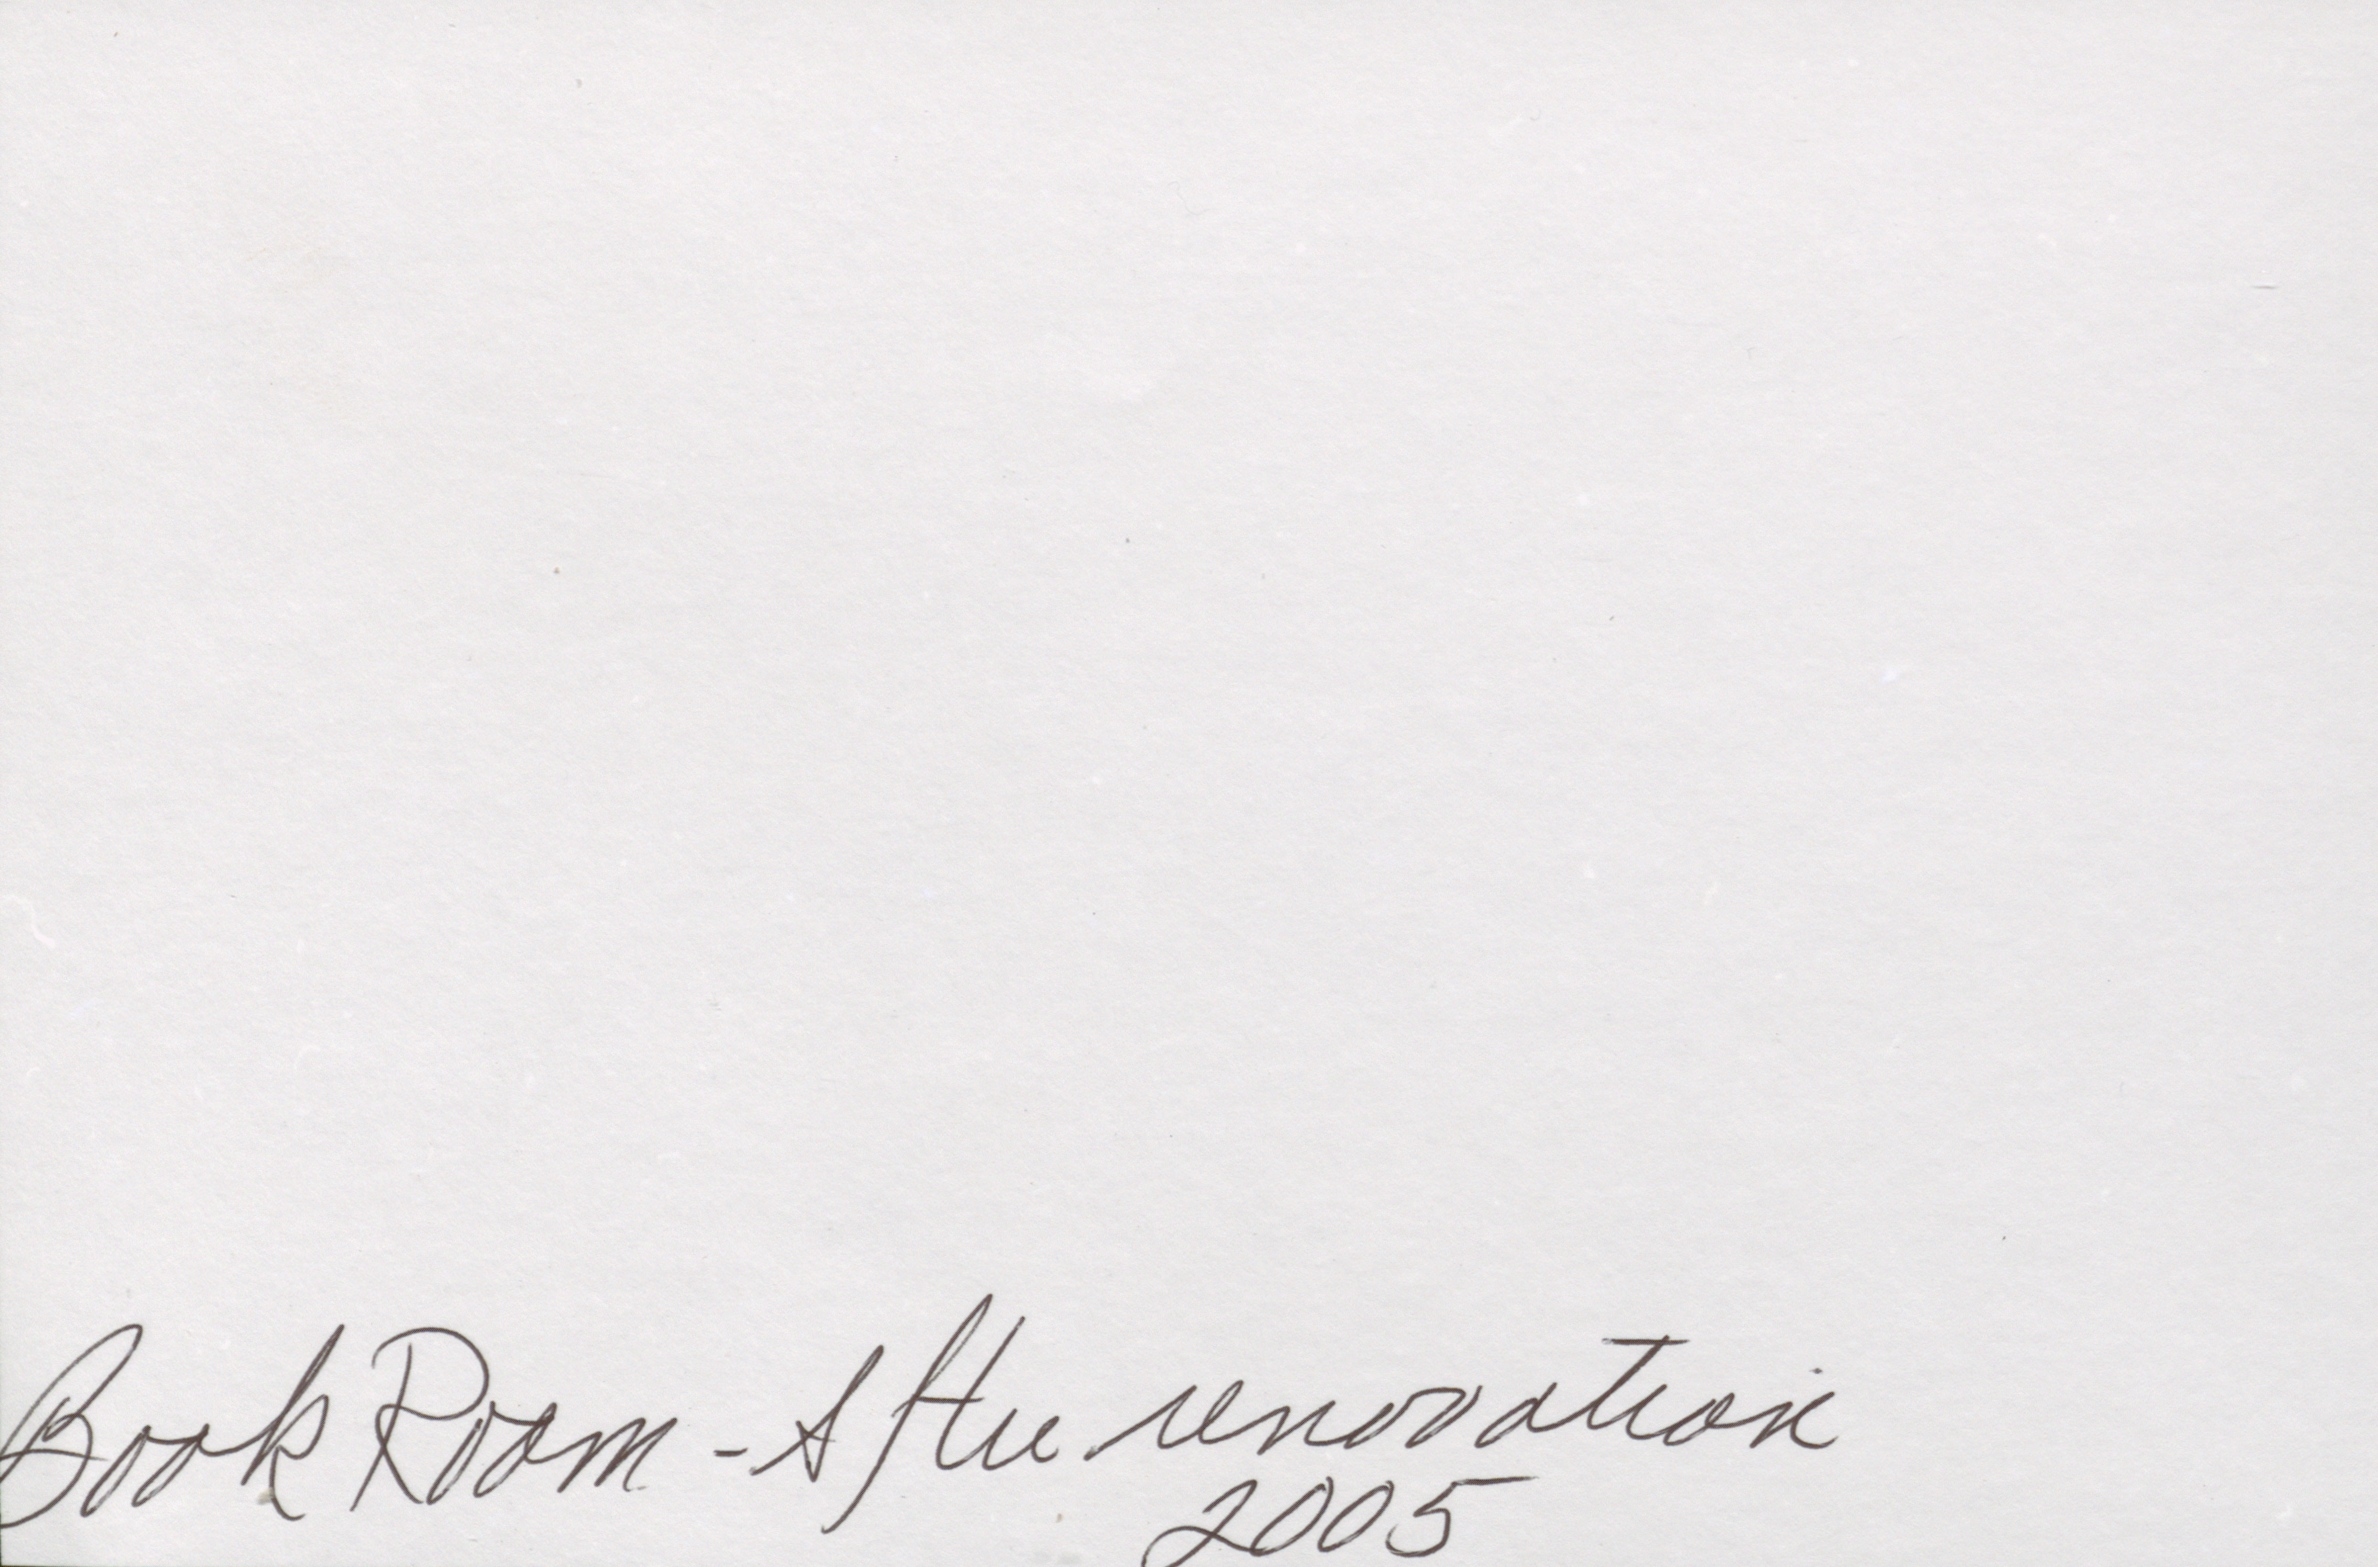 Book Room - After renovation
2005